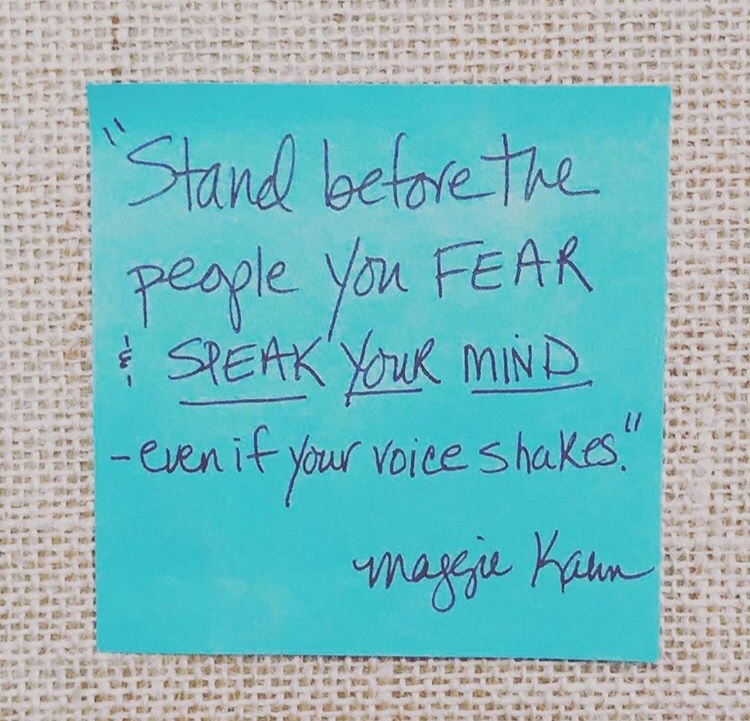 "Stand before the
people you FEAR
& SPEAK YOUR MIND
- even if your voice shakes."
Maggie Kahn